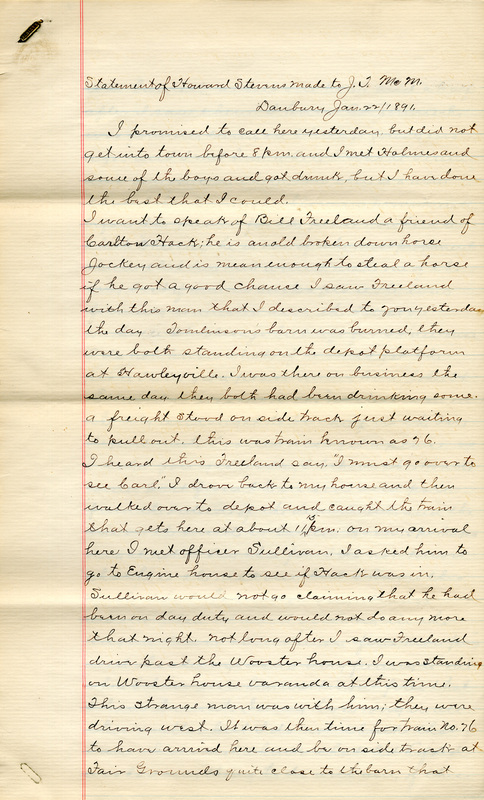 Statement of Howard Stevens made to J. T. McM.
Danbury Jan. 22/1891.
I promised to call here yesterday, but did not
get into town before 8 p.m. and I met Holmes and
some of the boys and got drunk, but I have done
the best that I could.
I want to speak of Bill Freeland a friend of
Carlton Hack; he is an old broken down horse
Jockey and is mean enough to steal a horse
if he got a good chance I saw Freeland
with this man that I described to you yesterday
the day Tomlinson's barn was burned, they
were both standing on the depot platform
at Hawleyville. I was there on business the
same day they both had been drinking some.
a freight stood on side track just waiting
to pull out. this was train known as 76.
I heard this Freeland say, "I must go over to
see Carl." I drove back to my house and then
walked over to depot and caught the train
that gets here at about p.m. on my arrival
here I met officer Sullivan. I asked him to
go to Engine house to see if Hack was in.
Sullivan would not go claiming that he had
been on day duty and would not do any more
that night. not long after I saw Freeland
drive past the Wooster house. I was standing
on Wooster house varanda at this time.
This strange man was with him; they were
driving west. It was then time for train No. 76
to have arrived here and be on side track at
Fair Grounds quite close to the barn that